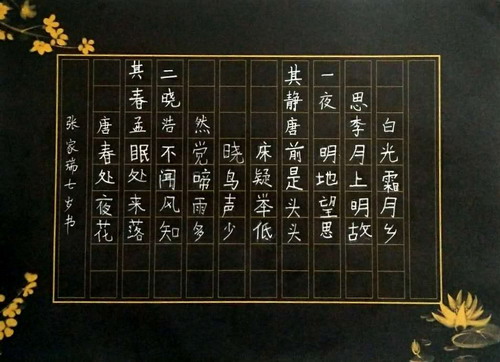 其一
静夜思
唐李白
床前明月光
疑是地上霜
举头望明月
低头思故乡
其二
春晓
唐孟浩然
春眠不觉晓
处处闻啼鸟
夜来风雨声
花落知多少
张家瑞七岁书